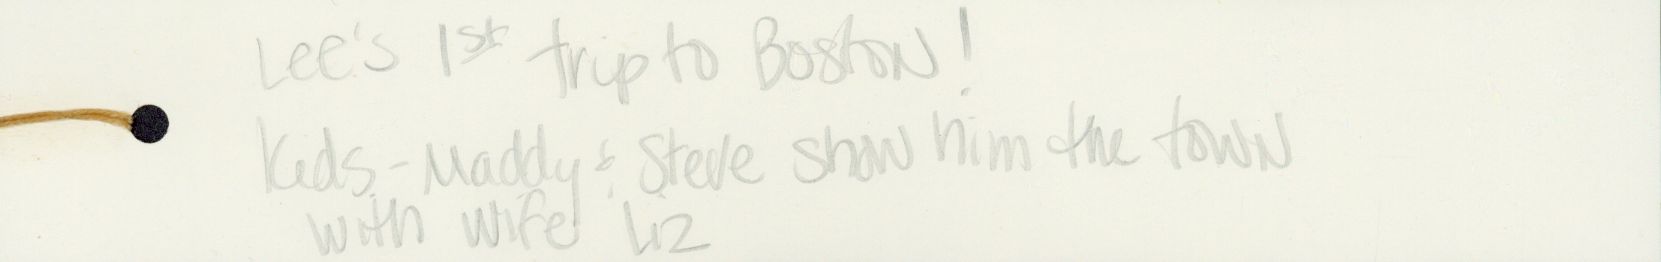 Lee's 1st trip to Boston!
Kids - Maddy & Steve show him the town
with wife Liz